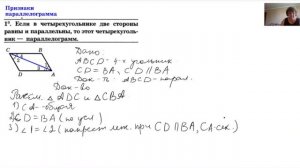 Признаки
параллелограмма
1°. Если в четырехугольнике две стороны
равны и параллельны, то этот четырехуголь-
ник — параллелограмм.
C B
2
1
D A
Дано:
ABCD - 4-х угольник
CD = BA, CD || BA
Док-ть: ABCD - парал.
Док-во
Рассм. △ ADC и △ CBA
1) CA - общая
2) CD = BA (по усл)
3) ∠1 = ∠2 (накрест леж. при CD || BA, CA - сек.)